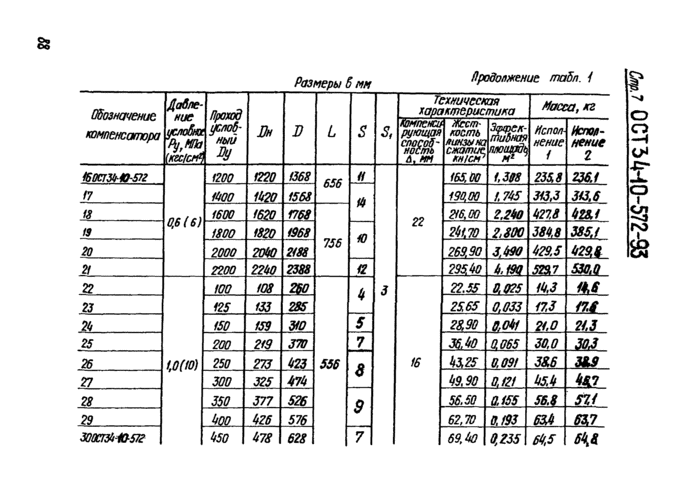 88
Размеры в мм
Продолжение табл. 1
Стр. 7 ОСТ 34-10-572-93
Обозначение компенсатора | Давление условное Ру, МПа (кгс/см²) | Проход условный Dу | Dн | D | L | S | S₁ | Техническая характеристика | Масса, кг
Компенсирующая способность Δ, мм | Жесткость линзы на сжатие, кН/см | Эффективная площадь, м² | Исполнение 1 | Исполнение 2
16 ОСТ 34-10-572 | 0,6 (6) | 1200 | 1220 | 1368 | 656 | 11 | 3 | 22 | 165,00 | 1,308 | 235,8 | 236,1
17 | 1400 | 1420 | 1568 | 14 | 190,00 | 1,745 | 313,3 | 313,6
18 | 1600 | 1620 | 1768 | 756 | 216,00 | 2,240 | 427,8 | 428,1
19 | 1800 | 1820 | 1968 | 10 | 241,70 | 2,800 | 384,8 | 385,1
20 | 2000 | 2040 | 2188 | 269,90 | 3,490 | 429,5 | 429,8
21 | 2200 | 2240 | 2388 | 12 | 295,40 | 4,190 | 529,7 | 530,0
22 | 1,0 (10) | 100 | 108 | 260 | 556 | 4 | 16 | 22,55 | 0,025 | 14,3 | 14,6
23 | 125 | 133 | 285 | 25,65 | 0,033 | 17,3 | 17,6
24 | 150 | 159 | 310 | 5 | 28,90 | 0,041 | 21,0 | 21,3
25 | 200 | 219 | 370 | 7 | 36,40 | 0,065 | 30,0 | 30,3
26 | 250 | 273 | 423 | 8 | 43,25 | 0,091 | 38,6 | 38,9
27 | 300 | 325 | 474 | 49,90 | 0,121 | 45,4
28 | 350 | 377 | 526 | 9 | 56,50 | 0,155 | 56,8 | 57,1
29 | 400 | 426 | 576 | 62,70 | 0,193 | 63,4 | 63,7
30 ОСТ 34-10-572 | 450 | 478 | 628 | 7 | 69,40 | 0,235 | 64,5 | 64,8